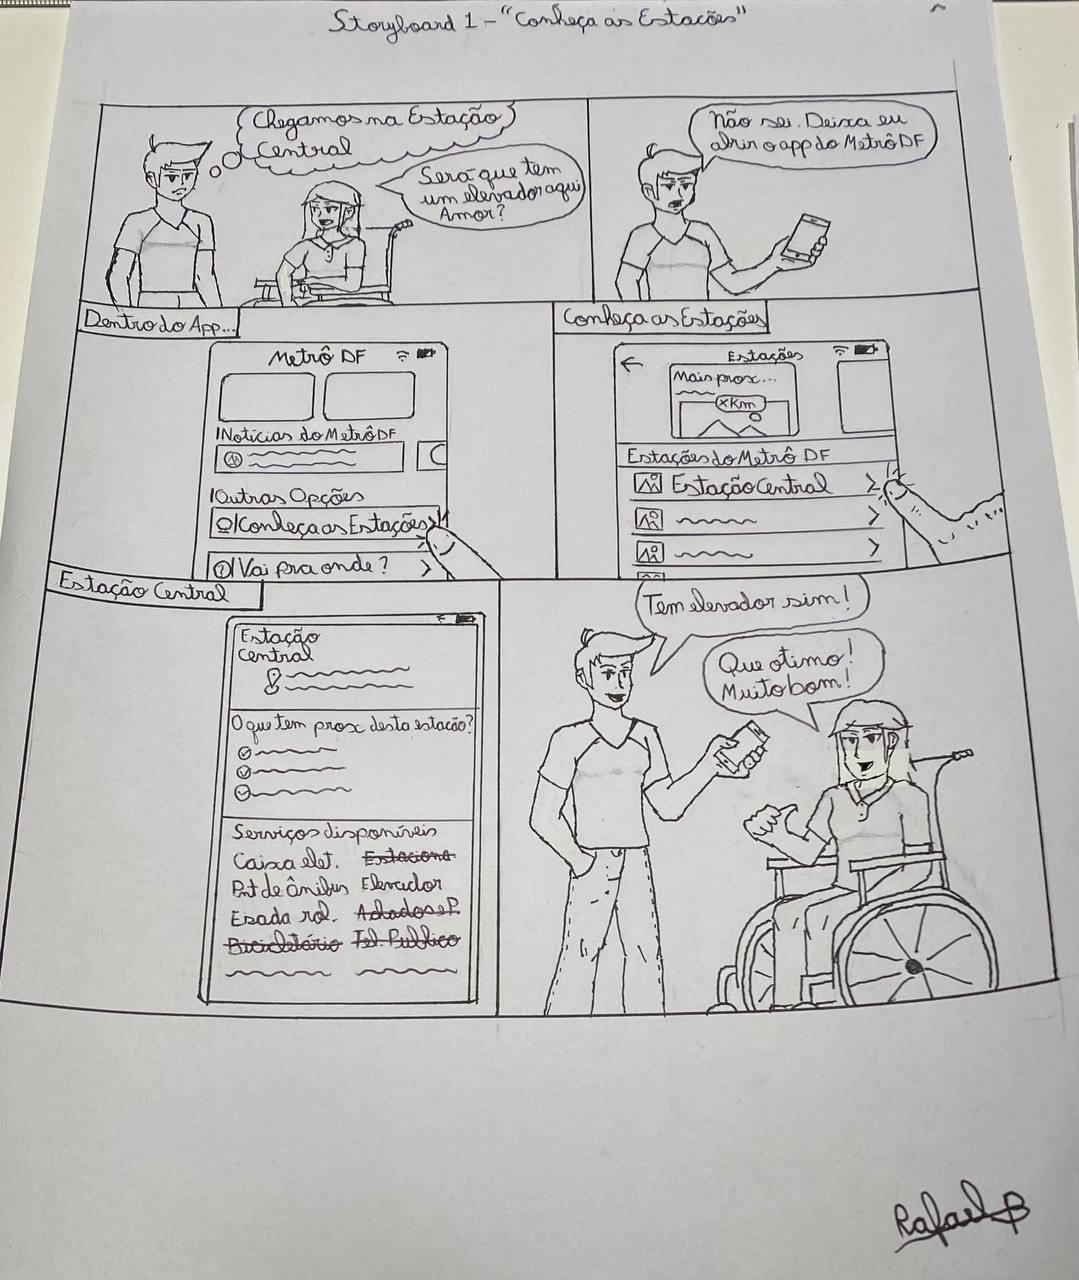 Storyboard 1 - "Conheça as Estacões"
Chegamos na Estação
Central
Será que tem
um elevador aqui
Amor?
Não sei. Deixa eu
abrir o app do Metrô DF
Dentro do App...
Metrô DF
Notícias do Metrô DF
Outras Opções
Conheça as Estações
Vai pra onde?
Conheça as Estações
Estações
Mais prox...
xKm
Estações do Metrô DF
Estação Central
Estação Central
Estação
Central
O que tem prox desta estação?
Serviços disponíveis
Caixa elet. Estaciona
Pnt de ônibus Elevador
Esada rol. Achados e P.
Bicicletário Tel. Publico
Tem elevador sim!
Que otimo!
Muito bom!
Rafael B